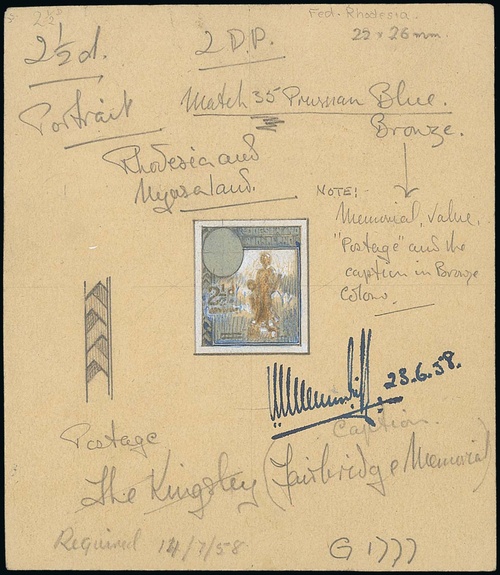 2½d
Fed. Rhodesia.
22 x 26 mm.
2½d.
2 D.P.
Portrait
Match 35 Prussian Blue.
Bronze.
Rhodesia and
Nyasaland.
NOTE:-
Memorial, Value,
"Postage" and the
caption in Bronze
Colour.
RHODESIA AND
NYASALAND
2½d
23.6.58.
Postage
Caption
The Kingsley (Fairbridge Memorial)
Required 14/7/58
G 1777